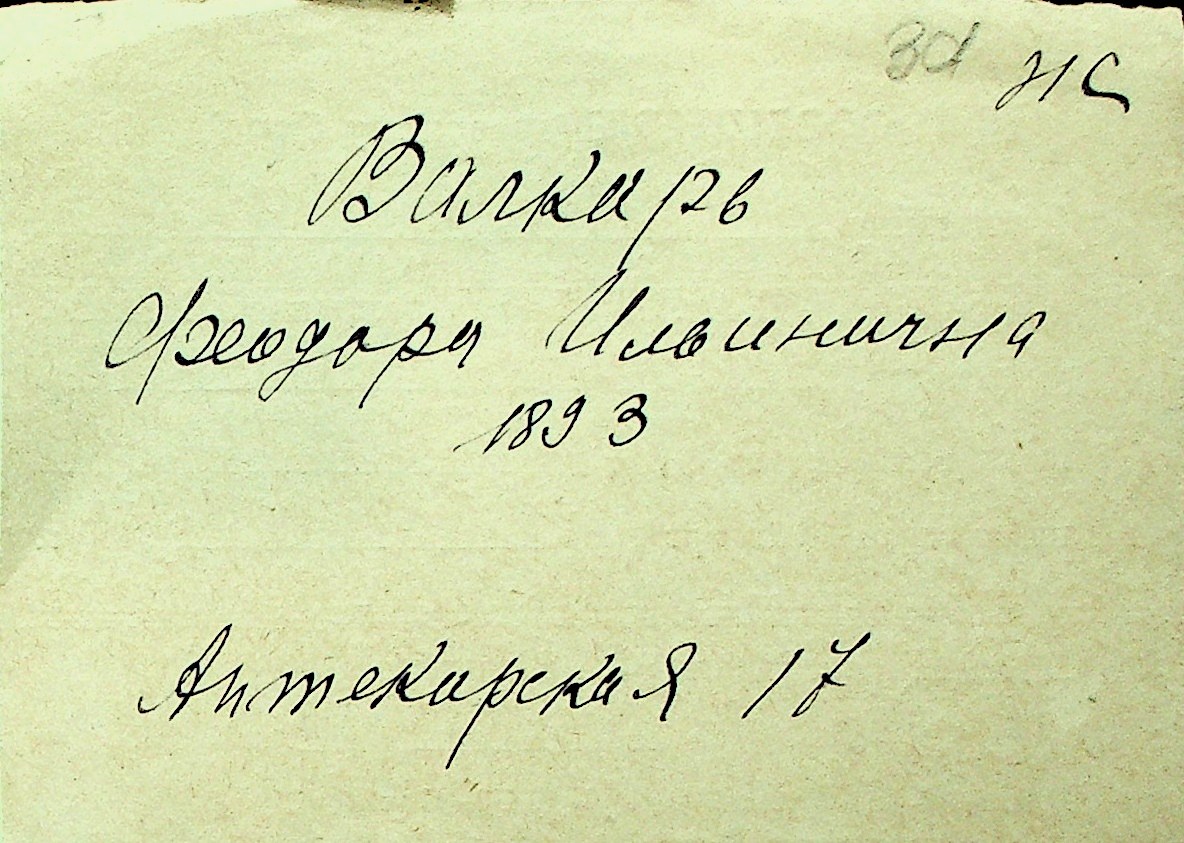 Валкарь
Феодора Ильинична
1893
Аптекарская 17